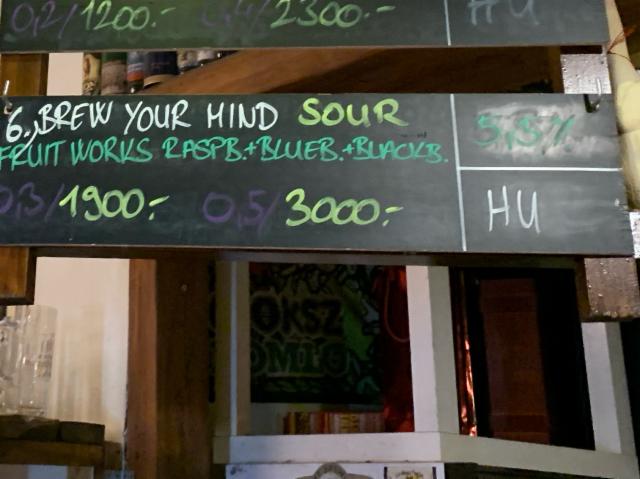 0,2/1200.- 0,4/2300.- HU
6., BREW YOUR MIND SOUR 5,5%
FRUIT WORKS RASPB.+BLUEB.+BLACKB.
0,3/1900.- 0,5/3000.- HU
OKSZ